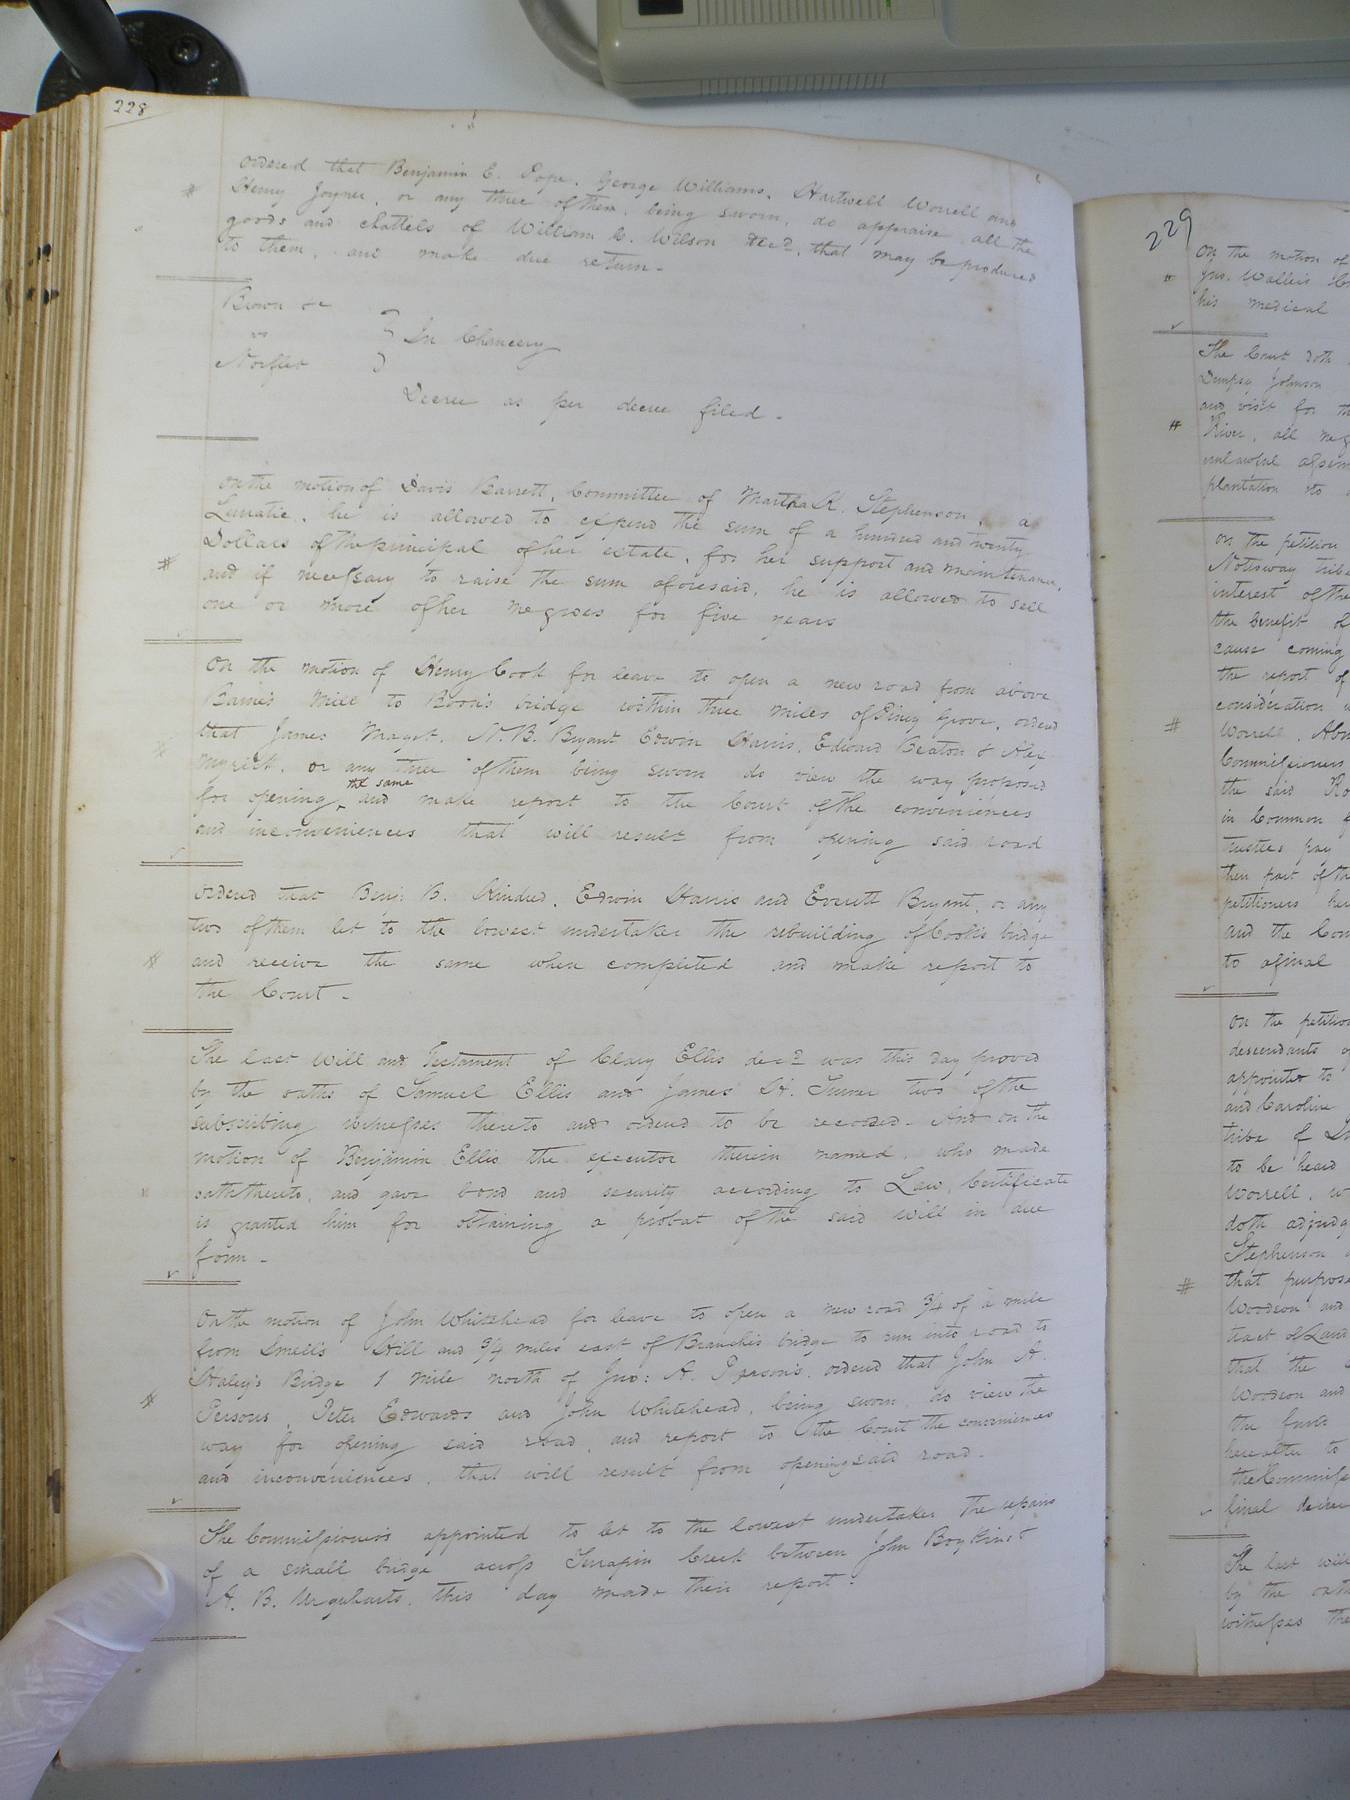 228
Ordered that Benjamin E. Pope, George Williams, Hartwell Worrell and
# Henry Joyner, or any three of them, being sworn, do appraise all the
goods and chattels of William C. Wilson decd., that may be produced
to them, and make due return.
Brown &c
vs } In Chancery
Norflet
Decree as per decree filed.
On the motion of Davis Barrett, Committee of Martha R. Stephenson, a
Lunatic, he is allowed to expend the sum of a hundred and twenty
# Dollars of the principal of her estate, for her support and maintenance,
and if necessary to raise the sum aforesaid, he is allowed to sell
one or more of her negroes for five years
On the motion of Henry Cook for leave to open a new road from above
Barnes Mill to Boon's bridge within three miles of Piney Grove, ordered
# that James Maget, N. B. Bryant Edwin Harris, Edward Beaton & Alex
Myrick, or any three of them being sworn do view the way proposed
the same
for opening, and make report to the Court of the conveniences
and inconveniences that will result from opening said road
Ordered that Benj: B. Kindred, Edwin Harris and Everett Bryant, or any
two of them let to the lowest undertaker the rebuilding of Cook's bridge
# and receive the same when completed and make report to
the Court.
The last Will and Testament of Clary Ellis decd. was this day proved
by the oaths of Samuel Ellis and James H. Turner two of the
subscribing witnesses thereto and ordered to be recorded. And on the
motion of Benjamin Ellis the executor therein named, who made
" oath thereto, and gave bond and security according to Law, Certificate
is granted him for obtaining a probat of the said will in due
form.
On the motion of John Whitehead for leave to open a new road 3/4 of a mile
from Smell's Hill and 3/4 miles east of Branch's bridge to run into road to
Haley's Bridge 1 mile north of Jno: A. Person's, ordered that John A.
# Persons, Peter Edwards and John Whitehead, being sworn, do view the
way for opening said road, and report to the Court the conveniences
and inconveniences, that will result from opening said road.
The Commissioners appointed to let to the lowest undertaker the repairs
of a small bridge across Terrapin Creek between John Boykins &
A. B. Urquharts, this day made their report.
229
On the motion of
" Jno. Wallis
his medical
The Court doth
Dempsey Johnson
and visit for
# River, all
unlawful
plantation to
On the petition
Nottoway tribe
interest of the
the benefit of
cause coming
the report of
consideration
# Worrell,
Commissioners
the said
in Common
trustees pay
their part of the
petitioners
and the
to a final
On the petition
descendants of
appointed to
and Caroline
tribe of
to be heard
Worrell,
doth adjudge
Stephenson
# that purpose
Woodson and
tract of Land
that the
Woodson and
the funds
hereafter to
the Commiss
final decree
The last will
by the oath
witnesses